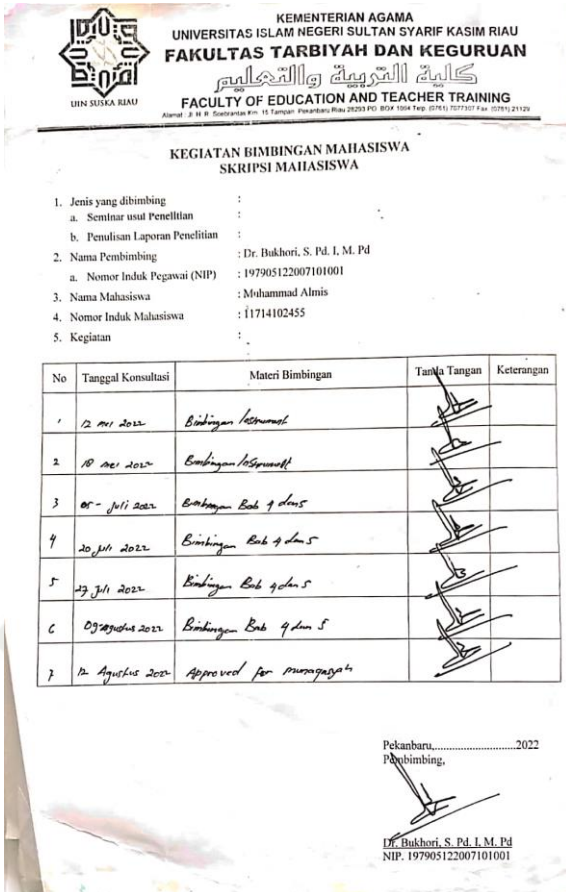 KEMENTERIAN AGAMA
UNIVERSITAS ISLAM NEGERI SULTAN SYARIF KASIM RIAU
FAKULTAS TARBIYAH DAN KEGURUAN
كلية التربية والتعليم
FACULTY OF EDUCATION AND TEACHER TRAINING
UIN SUSKA RIAU
Alamat : Jl. H. R. Soebrantas Km. 15 Tampan Pekanbaru Riau 28293 PO. BOX 1004 Telp. (0761) 7077307 Fax. (0761) 21129
KEGIATAN BIMBINGAN MAHASISWA
SKRIPSI MAHASISWA
1. Jenis yang dibimbing :
a. Seminar usul Penelitian :
b. Penulisan Laporan Penelitian :
2. Nama Pembimbing : Dr. Bukhori, S. Pd. I, M. Pd
a. Nomor Induk Pegawai (NIP) : 197905122007101001
3. Nama Mahasiswa : Muhammad Almis
4. Nomor Induk Mahasiswa : 11714102455
5. Kegiatan :
No Tanggal Konsultasi Materi Bimbingan Tanda Tangan Keterangan
1 12 mei 2022 Bimbingan Instrument
2 18 mei 2022 Bimbingan Instrument
3 05 - Juli 2022 Bimbingan Bab 4 dan 5
4 20 Juli 2022 Bimbingan Bab 4 dan 5
5 27 Juli 2022 Bimbingan Bab 4 dan 5
6 09-Agustus 2022 Bimbingan Bab 4 dan 5
7 12 Agustus 2022 Approved for munaqasyah
Pekanbaru,............................2022
Pembimbing,
Dr. Bukhori, S. Pd. I, M. Pd
NIP. 197905122007101001